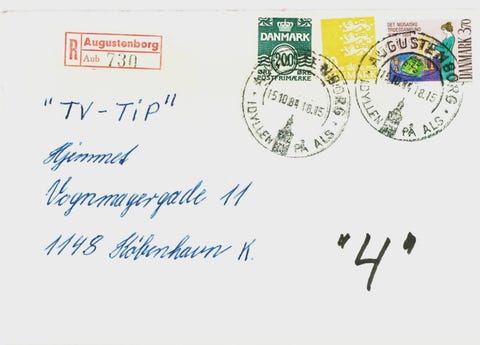 R Augustenborg
Aub 730
DANMARK
200
ØRE ØRE
POSTFRIMÆRKE
DET MOSAISKE
TROESSAMFUND
DANMARK 3.70
AUGUSTENBORG
15.10.84 18.15
IDYLLEN PÅ ALS
AUGUSTENBORG
15.10.84 18.15
IDYLLEN PÅ ALS
"TV-TiP"
Hjemmet
Vognmagergade 11
1148 København K.
"4"